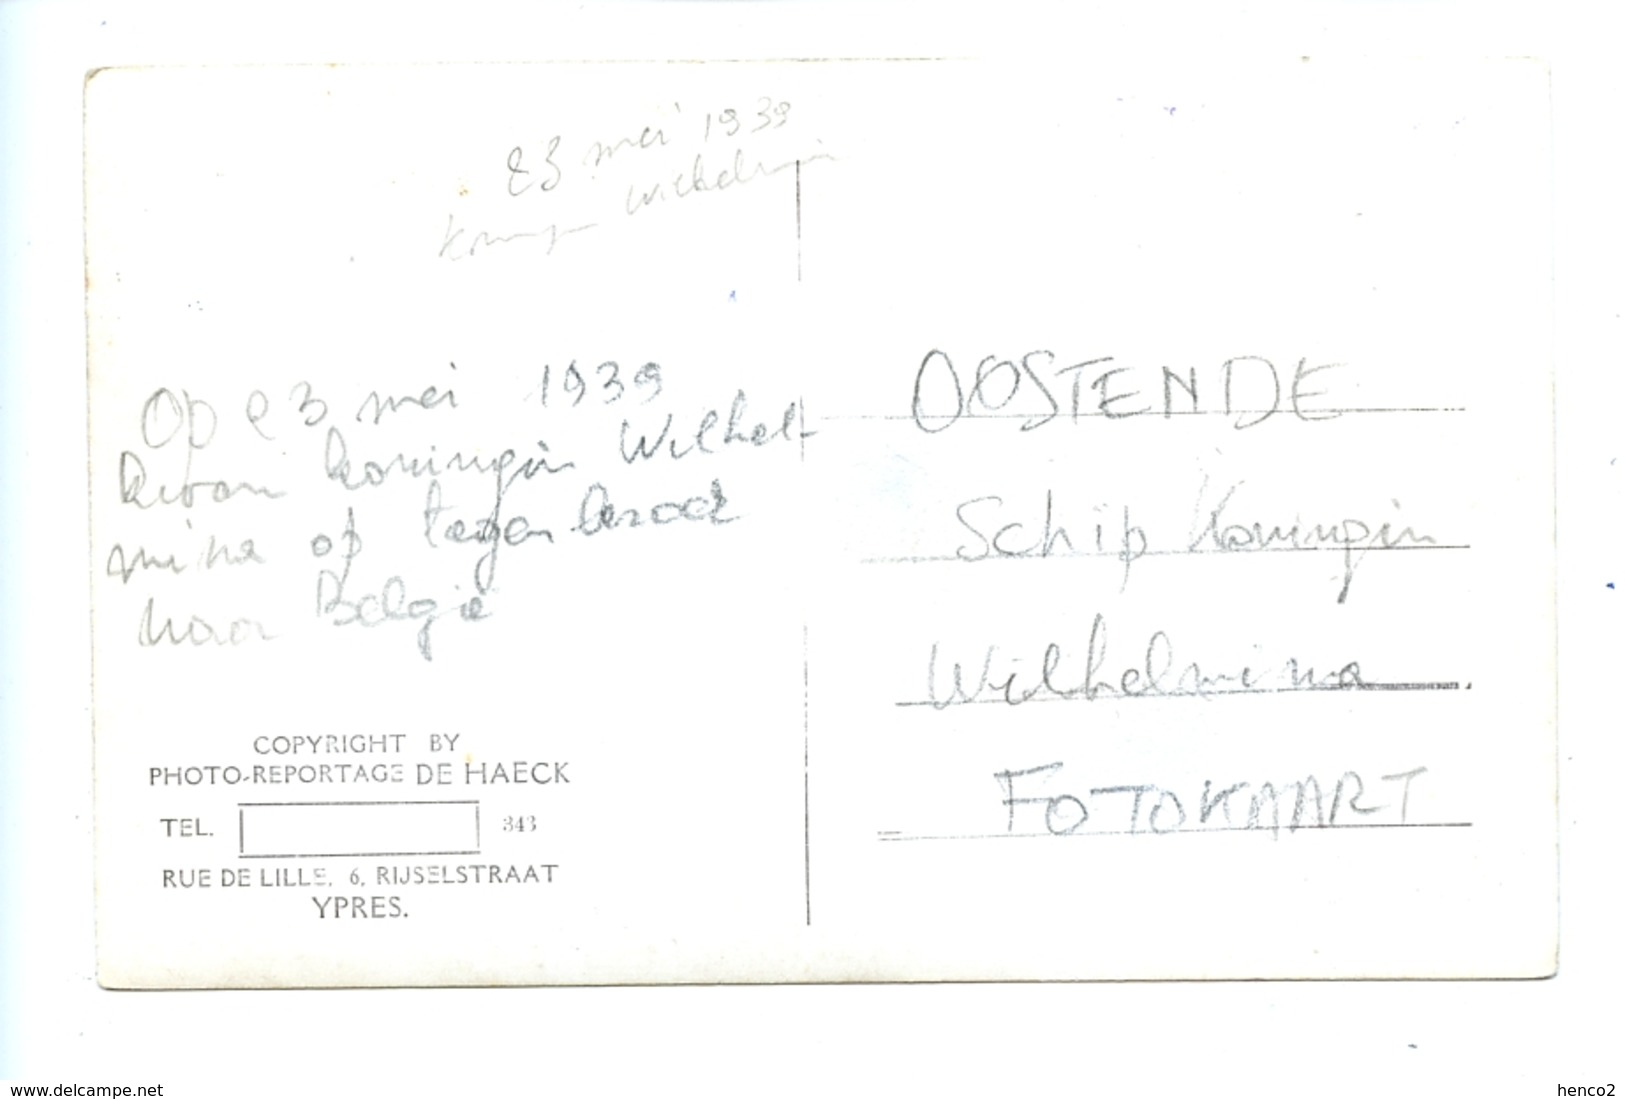 23 mei 1939
Koningin Wilhelmin
Op 23 mei 1939
kwam koningin Wilhel-
mina op tegenbezoek
naar België
COPYRIGHT BY
PHOTO-REPORTAGE DE HAECK
TEL. 343
RUE DE LILLE, 6, RIJSELSTRAAT
YPRES.
OOSTENDE
Schip Koningin
Wilhelmina
FOTOKAART
www.delcampe.net
henco2